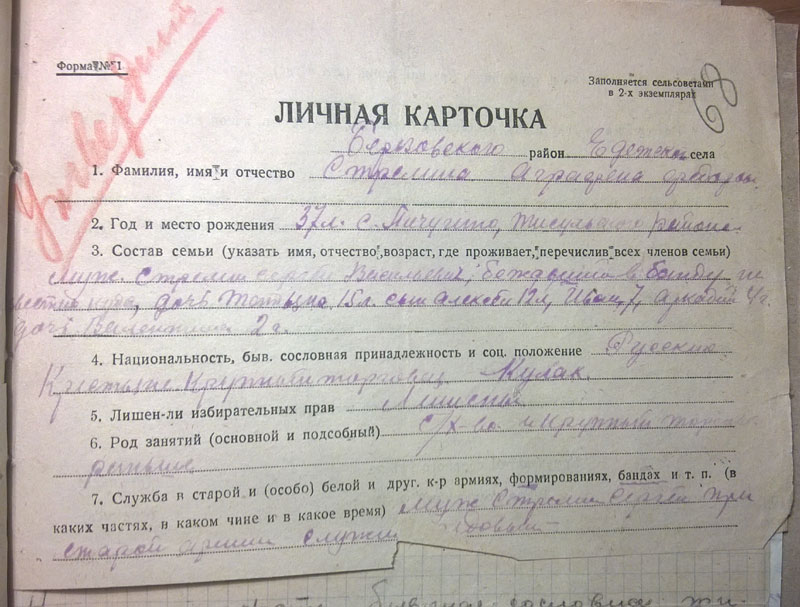 Форма № 1
68
Заполняется сельсоветами
в 2-х экземплярах
ЛИЧНАЯ КАРТОЧКА
район села
1. Фамилия, имя и отчество Стремина
2. Год и место рождения 37 л. с. Пичугино, Тисульского района.
3. Состав семьи (указать имя, отчество, возраст, где проживает, перечислив всех членов семьи)
Муж Стремин Сергей Васильевич, бежавший в банду не
куда, дочь Татьяна 15 л. сын Алексей 12 л, Иван 7, Аркадий 4 г.
дочь Валентина 2 г.
4. Национальность, быв. сословная принадлежность и соц. положение Русские
Крестьяне Крупный торговец Кулак.
5. Лишен-ли избирательных прав Лишены
6. Род занятий (основной и подсобный) с/х-во и крупный
раньше
7. Служба в старой и (особо) белой и друг. к-р армиях, формированиях, бандах и т. п. (в
каких частях, в каком чине и в какое время) Муж Стремин Сергей при
старой армии